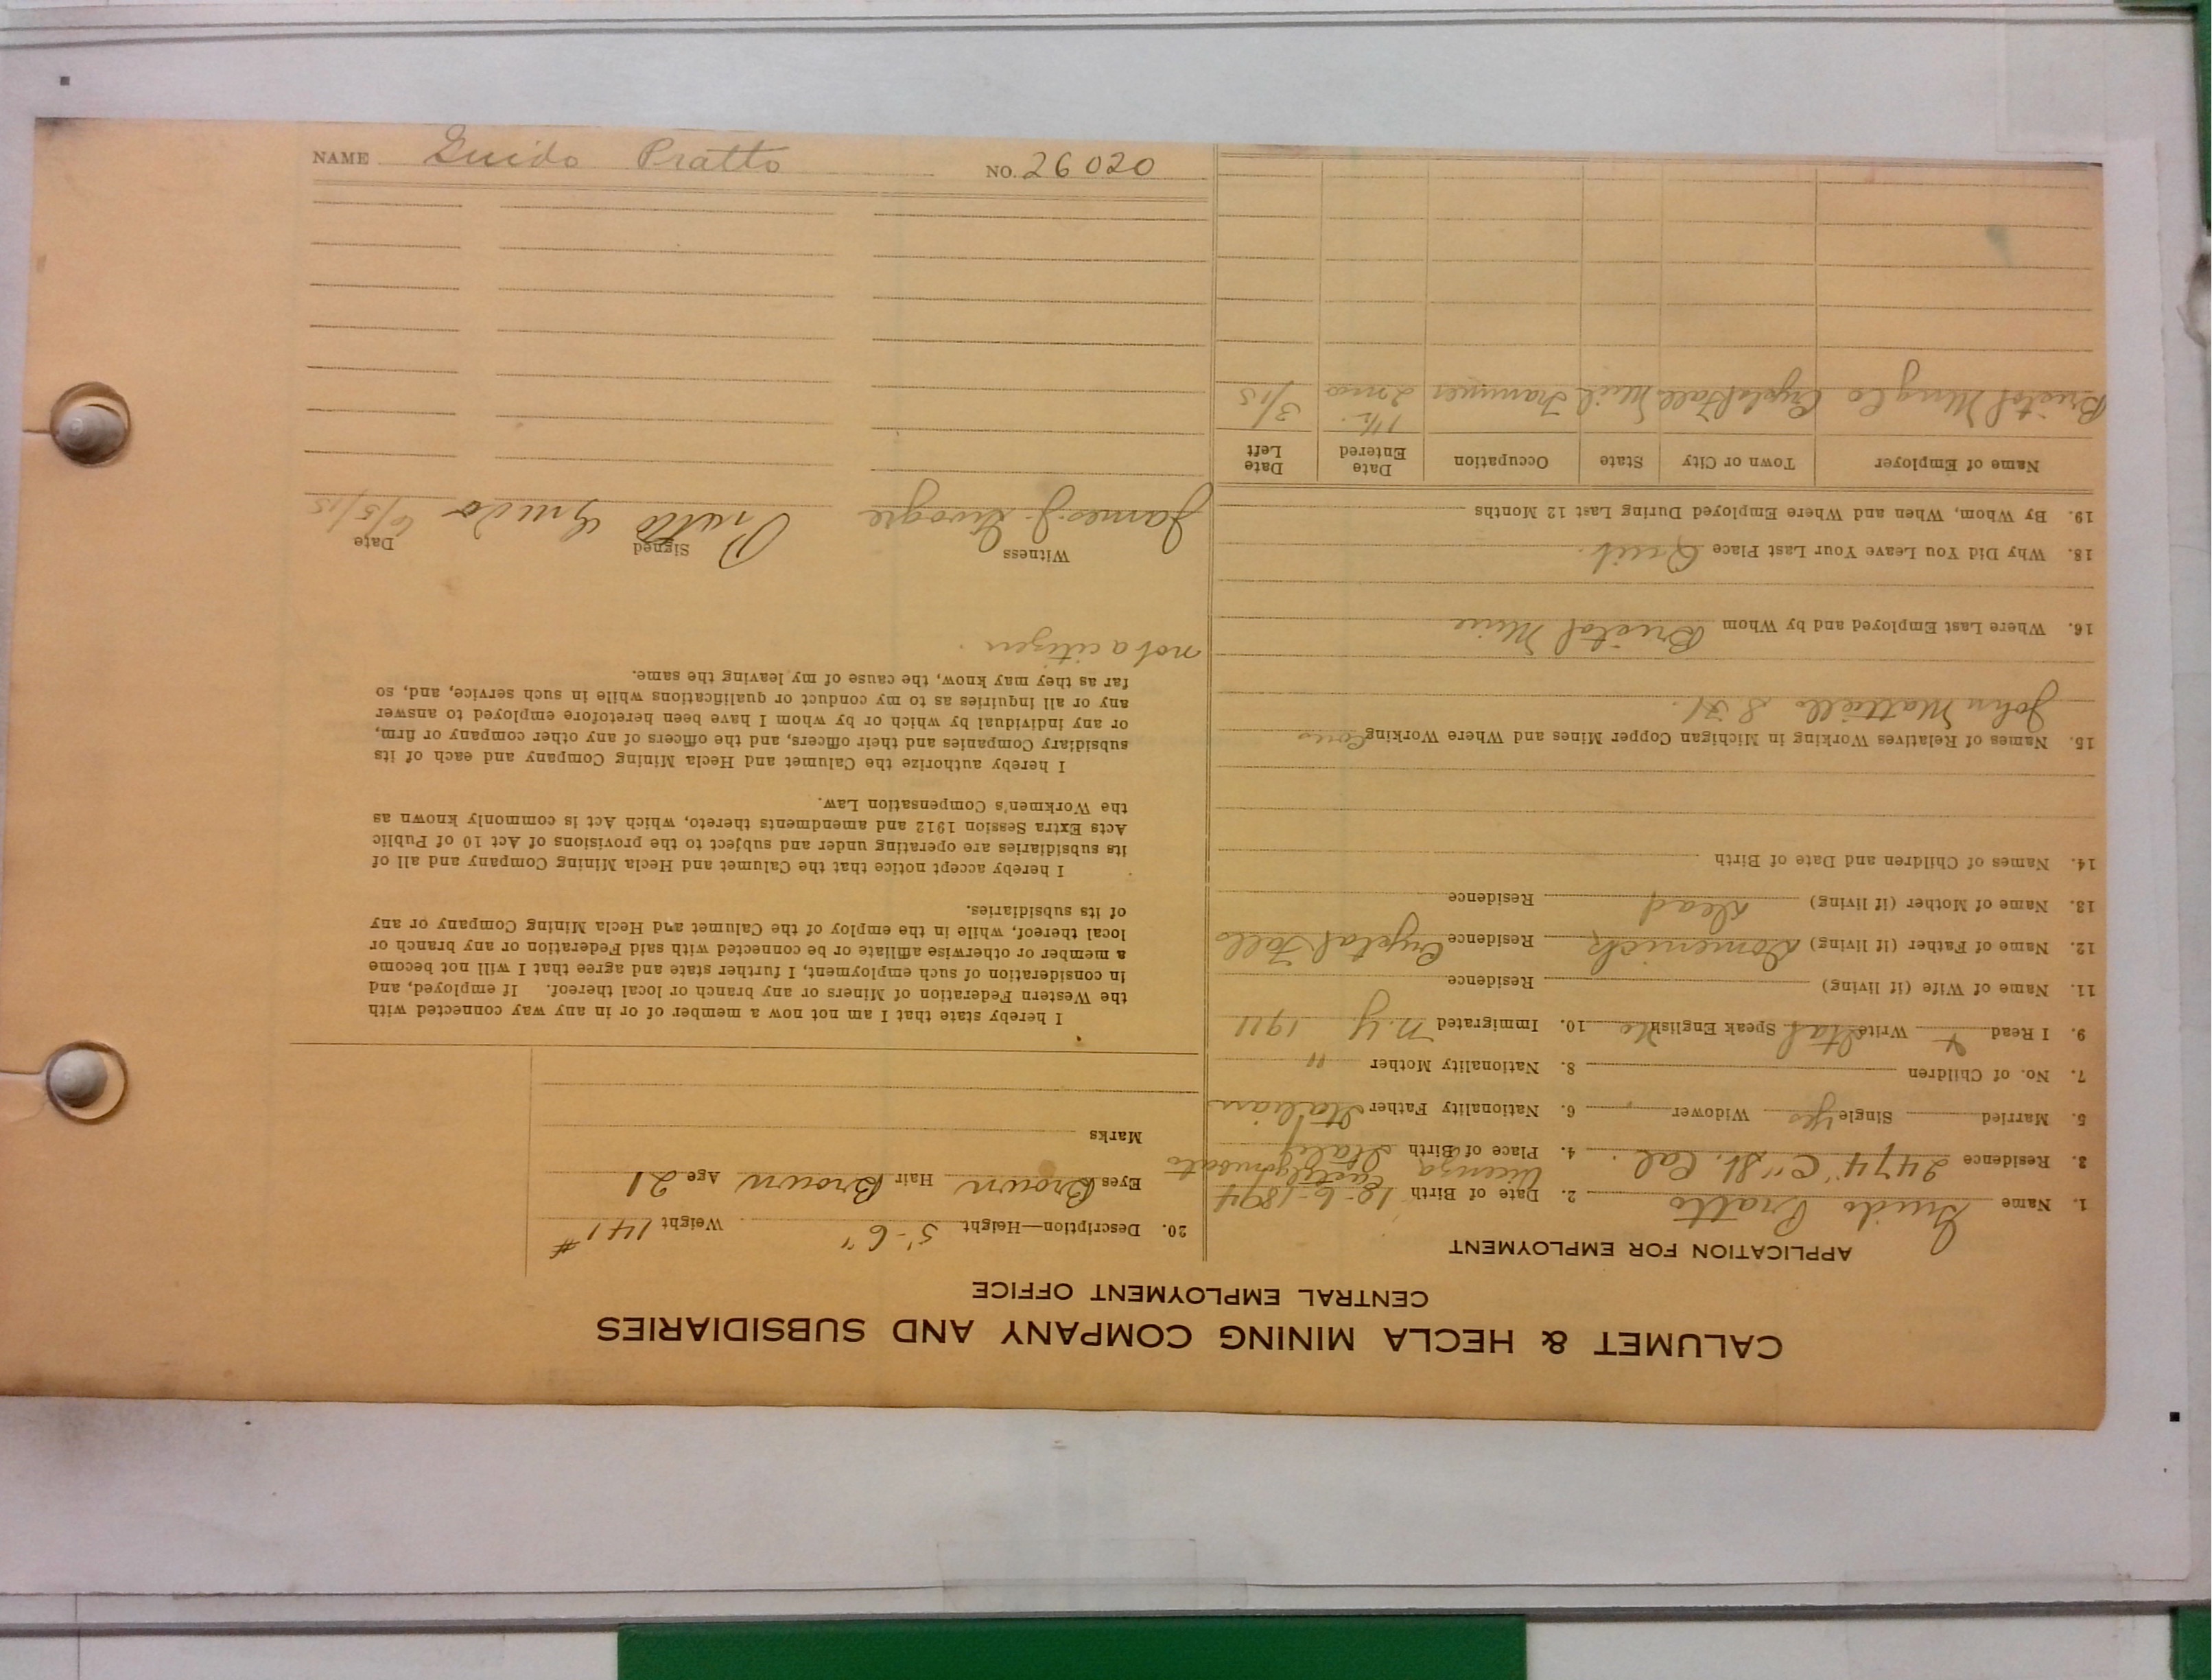 CALUMET & HECLA MINING COMPANY AND SUBSIDIARIES
CENTRAL EMPLOYMENT OFFICE
APPLICATION FOR EMPLOYMENT
1. Name Guido Pratto 2. Date of Birth 12-6-1894
3. Residence 2474 "C" St. Cal. 4. Place of Birth Vicenza Italy
5. Married Single yes Widower 6. Nationality Father Italian
7. No. of Children 8. Nationality Mother "
9. I Read + Write Ital Speak English No 10. Immigrated N.Y. 1911
11. Name of Wife (if living) Residence
12. Name of Father (if living) Domenick Residence Crystal Falls
13. Name of Mother (if living) Dead Residence
14. Names of Children and Date of Birth
15. Names of Relatives Working in Michigan Copper Mines and Where Working Cous
John Mattiello S. H.
16. Where Last Employed and by Whom Bristol Mine
18. Why Did You Leave Your Last Place Quit.
19. By Whom, When and Where Employed During Last 12 Months
Name of Employer Town or City State Occupation Date Entered Date Left
Bristol Mng Co Crystal Falls Mich Trammer 1 1/2 2 mo 3/15
20. Description—Height 5'-6" Weight 141 #
Eyes Brown Hair Brown Age 21
Marks
I hereby state that I am not now a member of or in any way connected with
the Western Federation of Miners or any branch or local thereof. If employed, and
in consideration of such employment, I further state and agree that I will not become
a member or otherwise affiliate or be connected with said Federation or any branch or
local thereof, while in the employ of the Calumet and Hecla Mining Company or any
of its subsidiaries.
I hereby accept notice that the Calumet and Hecla Mining Company and all of
its subsidiaries are operating under and subject to the provisions of Act 10 of Public
Acts Extra Session 1912 and amendments thereto, which Act is commonly known as
the Workmen's Compensation Law.
I hereby authorize the Calumet and Hecla Mining Company and each of its
subsidiary Companies and their officers, and the officers of any other company or firm,
or any individual by which or by whom I have been heretofore employed to answer
any or all inquiries as to my conduct or qualifications while in such service, and, so
far as they may know, the cause of my leaving the same.
not a citizen.
Witness Signed Date
James J. Pratto Guido 6/5/15
NAME Guido Pratto NO. 26020